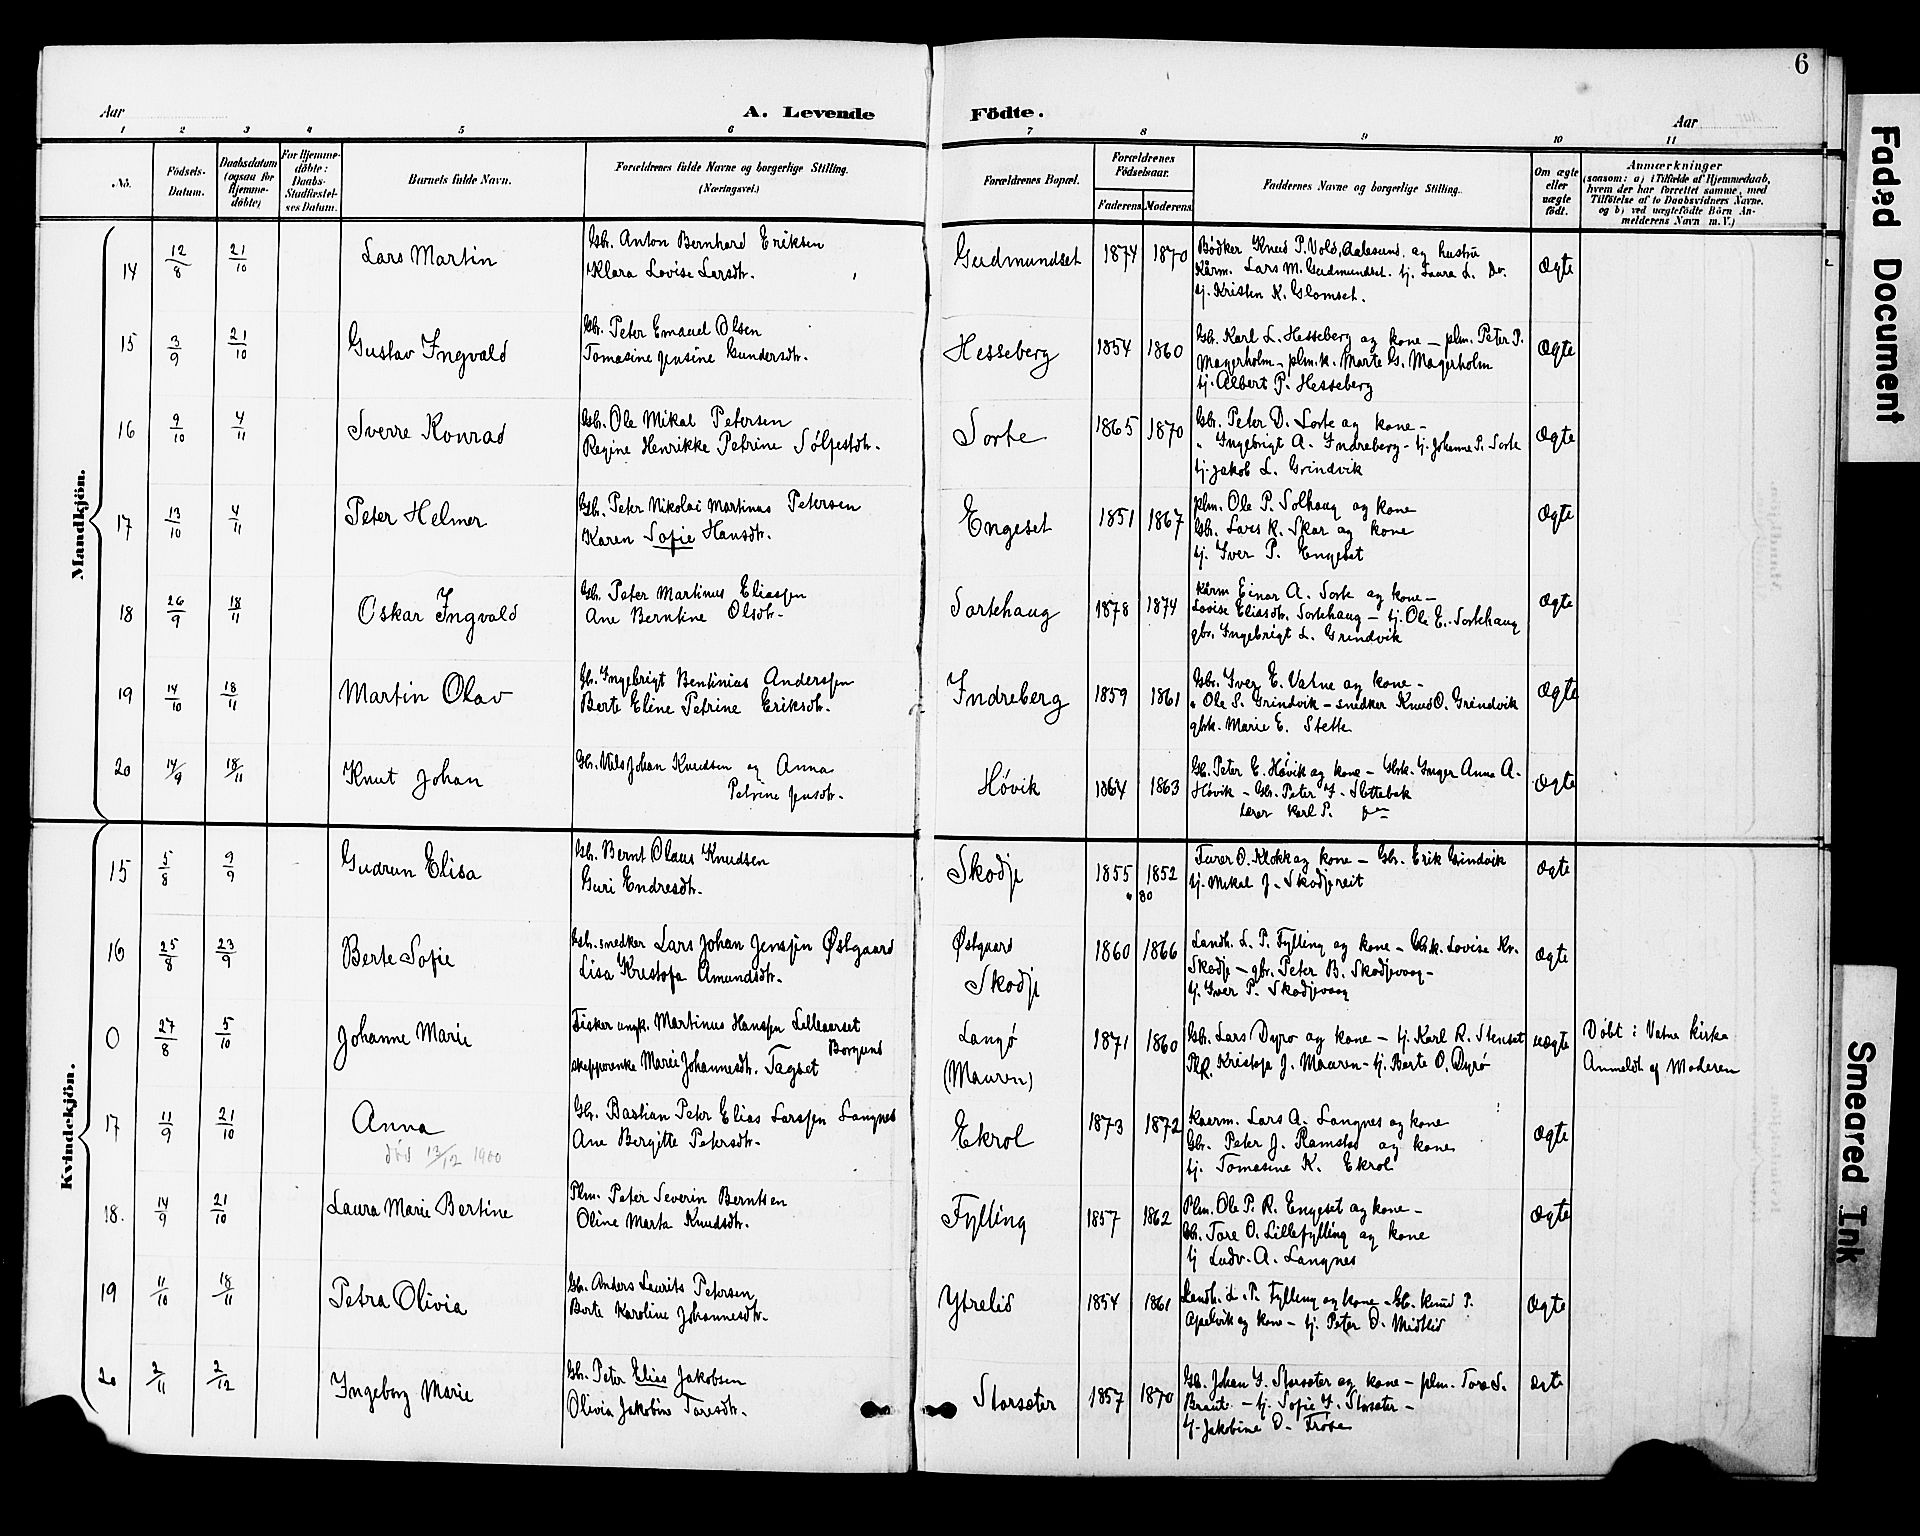 6
Aar
A. Levende
Födte.
Aar
1 2 3 4 5 6 7 8 9 10 11
No.
Födsels-Datum.
Daabsdatum (ogsaa for Hjemme-döbte)
For Hjemme-döbte: Daabs-Stadfæstel-ses Datum.
Barnets fulde Navn.
Forældrenes fulde Navne og borgerlige Stilling.
(Næringsvei.)
Forældrenes Bopæl.
Forældrenes Födselsaar.
Faderens Moderens
Faddernes Navne og borgerlige Stilling.
Om ægte eller uægte födt.
Anmærkninger
(saasom: a) i Tilfælde af Hjemmedaab,
hvem der har forrettet samme, med
Tilföielse af to Daabsvidners Navne.
og b) ved uægtefödte Börn An-
melderens Navn m. V.)
Mandkjön.
14 12/8 21/10 Lars Martin
Gbr. Anton Bernhard Eriksen
Klara Lovise Larsdtr.
Gudmundset 1874 1870
Bødker Knud P. Vold, Aalesund, og hustru
Kårm. Lars M. Gudmundset. tj. Laura L. Do.
tj. Kristen K. Glomset.
Ægte
15 3/9 21/10 Gustav Ingvald
Gbr. Peter Emanel Olsen
Tomasine Jensine Gundersdtr.
Hesseberg 1854 1860
Gbr. Karl L. Hesseberg og kone - plm. Peter P.
Magerholm - plm.k. Marte G. Magerholm
tj. Albert P. Hesseberg
Ægte
16 9/10 4/11 Sverre Konrad
Gbr. Ole Mikal Petersen
Regine Henrikke Petrine Sølfestdtr.
Sorte 1865 1870
Gbr. Peter D. Sorte og kone -
" Ingebrigt A. Indreberg - tj. Johanne P. Sorte
tj. Jakob L. Grindvik
Ægte
17 13/10 4/11 Peter Helmer
Gbr. Peter Nikolai Martinus Petersen
Karen Sofie Hansdtr.
Engeset 1851 1867
plm. Ole P. Solhaug og kone
Gbr. Lars K. Skar og kone
tj. Iver P. Engeset
Ægte
18 26/9 18/11 Oskar Ingvald
Gbr. Peter Martinus Eliassen
Ane Berntine Olsdtr.
Sortehaug 1878 1874
Kårm Einar A. Sorte og kone -
Lovise Eliasdtr. Sortehaug - tj. Ole E. Sortehaug
gbr. Ingebrigt L. Grindvik
Ægte
19 14/10 18/11 Martin Olav
Gb. Ingebrigt Bentinius Anderssen
Berte Eline Petrine Eriksdtr.
Indreberg 1859 1861
Gbr. Iver E. Vatne og kone -
" Ole S. Grindvik - snedker Knud O. Grindvik
gbrk. Marie E. Stette
Ægte
20 14/9 18/11 Knut Johan
Gb. Nils Johan Knudsen og Anna
Petrine Jensdtr.
Høvik 1864 1863
Gb. Peter E. Høvik og kone - Gbrk. Inger Anna A.
Høvik - Gb. Peter I. Slettebak
Lærer Karl P.
Ægte
Kvindekjön.
15 5/8 9/9 Gudrun Elisa
Gb. Bernt Olaus Knudsen
Guri Endresdtr.
Skodje 1855 1852
" 80
Turer O. Klokk og kone - Gbr. Erik Grindvik
tj. Mikal J. Skodjereit
Ægte
16 25/8 23/9 Berte Sofie
Gbr. snedker Lars Johan Jenssen Østgaard
Lisa Kristofa Amundsdtr.
Østgaard
Skodje
1860 1866
Landh. L. P. Fylling og kone - Gbrk. Lovise Kr.
Skodje - gbr. Peter B. Skodjevaag -
tj. Iver P. Skodjevaag
Ægte
0 27/8 5/10 Johanne Marie
Fisker ungk. Martinus Hanssen Lilleaarset
Borgund
skipperenke Marie Johannesdtr. Fagset
Langø
(Mauren)
1871 1860
Gbr. Lars Dyrø og kone - tj. Karl R. Stenset
Plk. Kristofa J. Mauren - tj. Berte O. Dyrø
uægte
Döbt i Vatne kirke
Anmeldt af Moderen
17 11/9 21/10 Anna
død 13/12 1900
Gbr. Bastian Peter Elias Larssen Langnes
Ane Bergitte Petersdtr.
Ekrol 1873 1872
Kaarm. Lars A. Langnes og kone
Gbr. Peter J. Ramstad og kone
tj. Tomasine K. Ekrol
Ægte
18. 14/9 21/10 Laura Marie Bertine
Plm. Peter Severin Berntsen
Oline Marta Knudsdtr.
Fylling 1857 1862
Plm. Ole P. R. Engeset og kone -
Gb. Tore O. Lillefylling og kone
tj Ludv. A. Langnes
Ægte
19 11/10 18/11 Petra Olivia
Gb. Anders Laurits Petersen
Berte Karoline Johannesdtr.
Ytrelid 1854 1861
Landh. L. P. Fylling og kone - Gb. Knud P.
Apelvik og kone - tj. Peter O. Midtlid
Ægte
20 2/11 2/12 Ingeborg Marie
Gb. Peter Elias Jakobsen
Olivia Jakobine Toresdtr.
Storsæter 1857 1870
Gb. Johan I. Storsæter og kone - plm. Tore S.
Braute - tj. Sofie I. Storsæter -
tj. Jakobine O. Frøse
Ægte
Faded Document
Smeared Ink